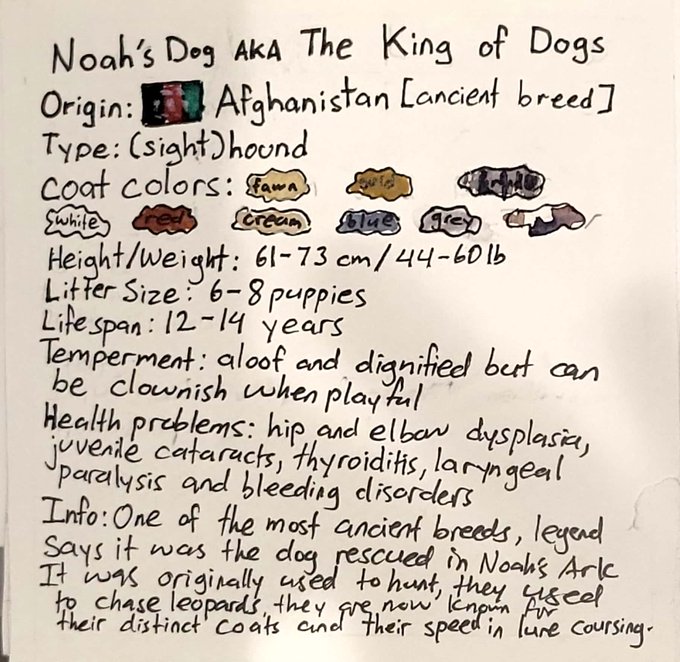 Noah's Dog AKA The King of Dogs
Origin: Afghanistan [ancient breed]
Type: (sight)hound
coat colors: fawn gold brindle
white red cream blue grey
Height/Weight: 61-73 cm/44-60lb
Litter Size: 6-8 puppies
Lifespan: 12-14 years
Temperment: aloof and dignified but can
be clownish when playful
Health problems: hip and elbow dysplasia,
juvenile cataracts, thyroiditis, laryngeal
paralysis and bleeding disorders
Info: One of the most ancient breeds, legend
says it was the dog rescued in Noah's Ark
It was originally used to hunt, they used
to chase leopards, they are now known for
their distinct coats and their speed in lure coursing.